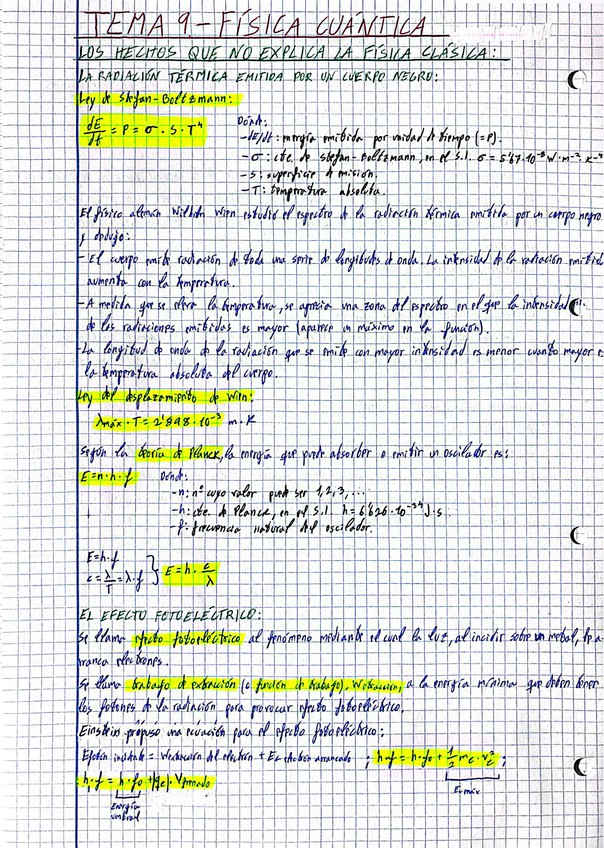 TEMA 9.- FÍSICA CUÁNTICA
LOS HECHOS QUE NO EXPLICA LA FÍSICA CLÁSICA:
LA RADIACIÓN TÉRMICA EMITIDA POR UN CUERPO NEGRO:
Ley de Stefan-Boltzmann:
dE/dt = P = σ · S · T⁴
Donde:
-dE/dt: energía emitida por unidad de tiempo (=P).
-σ: cte. de Stefan-Boltzmann, en el S.I. σ = 5'67·10⁻⁸ W·m⁻²·K⁻⁴
-S: superficie de emisión.
-T: temperatura absoluta.
El físico alemán Wilhelm Wien estudió el espectro de la radiación térmica emitida por un cuerpo negro
y dedujo:
- El cuerpo emite radiación de toda una serie de longitudes de onda. La intensidad de la radiación emitida
aumenta con la temperatura.
-A medida que se eleva la temperatura, se aprecia una zona del espectro en el que la intensidad
de las radiaciones emitidas es mayor (aparece un máximo en la función).
-La longitud de onda de la radiación que se emite con mayor intensidad es menor cuanto mayor es
la temperatura absoluta del cuerpo.
Ley del desplazamiento de Wien:
λmáx · T = 2'898 · 10⁻³ m·K
Según la teoría de Planck, la energía que puede absorber o emitir un oscilador es:
E=n·h·f
Donde:
-n: nº cuyo valor puede ser 1, 2, 3, ...
-h: cte. de Planck, en el S.I. h = 6'626·10⁻³⁴ J·s.
-f: frecuencia natural del oscilador.
E=h·f
c = λ/T = λ·f } E = h · c/λ
EL EFECTO FOTOELÉCTRICO:
Se llama efecto fotoeléctrico al fenómeno mediante el cual la luz, al incidir sobre un metal, le a-
rranca electrones.
Se llama trabajo de extracción (o función de trabajo), Wextracción, a la energía mínima que deben tener
los fotones de la radiación para provocar efecto fotoeléctrico.
Einstein propuso una ecuación para el efecto fotoeléctrico:
Efotón incidente = Wextracción del electrón + Ec electrón arrancado ; h·f = h·f₀ + 1/2 mₑ·vₑ² ;
Ec máx
h·f = h·f₀ + |qₑ|·Vfrenado
Energía
umbral